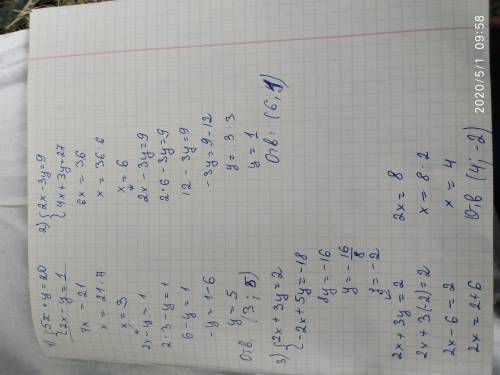 1) {5x + y = 20
{2x - y = 1
7x = 21
x = 21 : 7
x = 3
2x - y = 1
2 · 3 - y = 1
6 - y = 1
-y = 1 - 6
y = 5
Отв. (3; 5)
2) {2x - 3y = 9
{4x + 3y = 27
6x = 36
x = 36 : 6
x = 6
2x - 3y = 9
2 · 6 - 3y = 9
12 - 3y = 9
-3y = 9 - 12
y = 3 : 3
y = 1
Отв: (6; 1)
3) {2x + 3y = 2
{-2x + 5y = -18
8y = -16
y = -16/8
y = -2
2x + 3y = 2
2x + 3(-2) = 2
2x - 6 = 2
2x = 2 + 6
2x = 8
x = 8 : 2
x = 4
Отв (4; -2)
2020/5/1 09:58